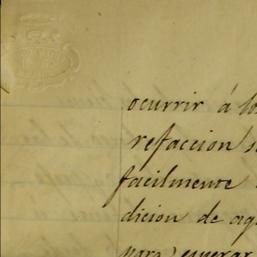 ocurrir á lo
refaccion s
facilmente
dicion de aq
para esperar